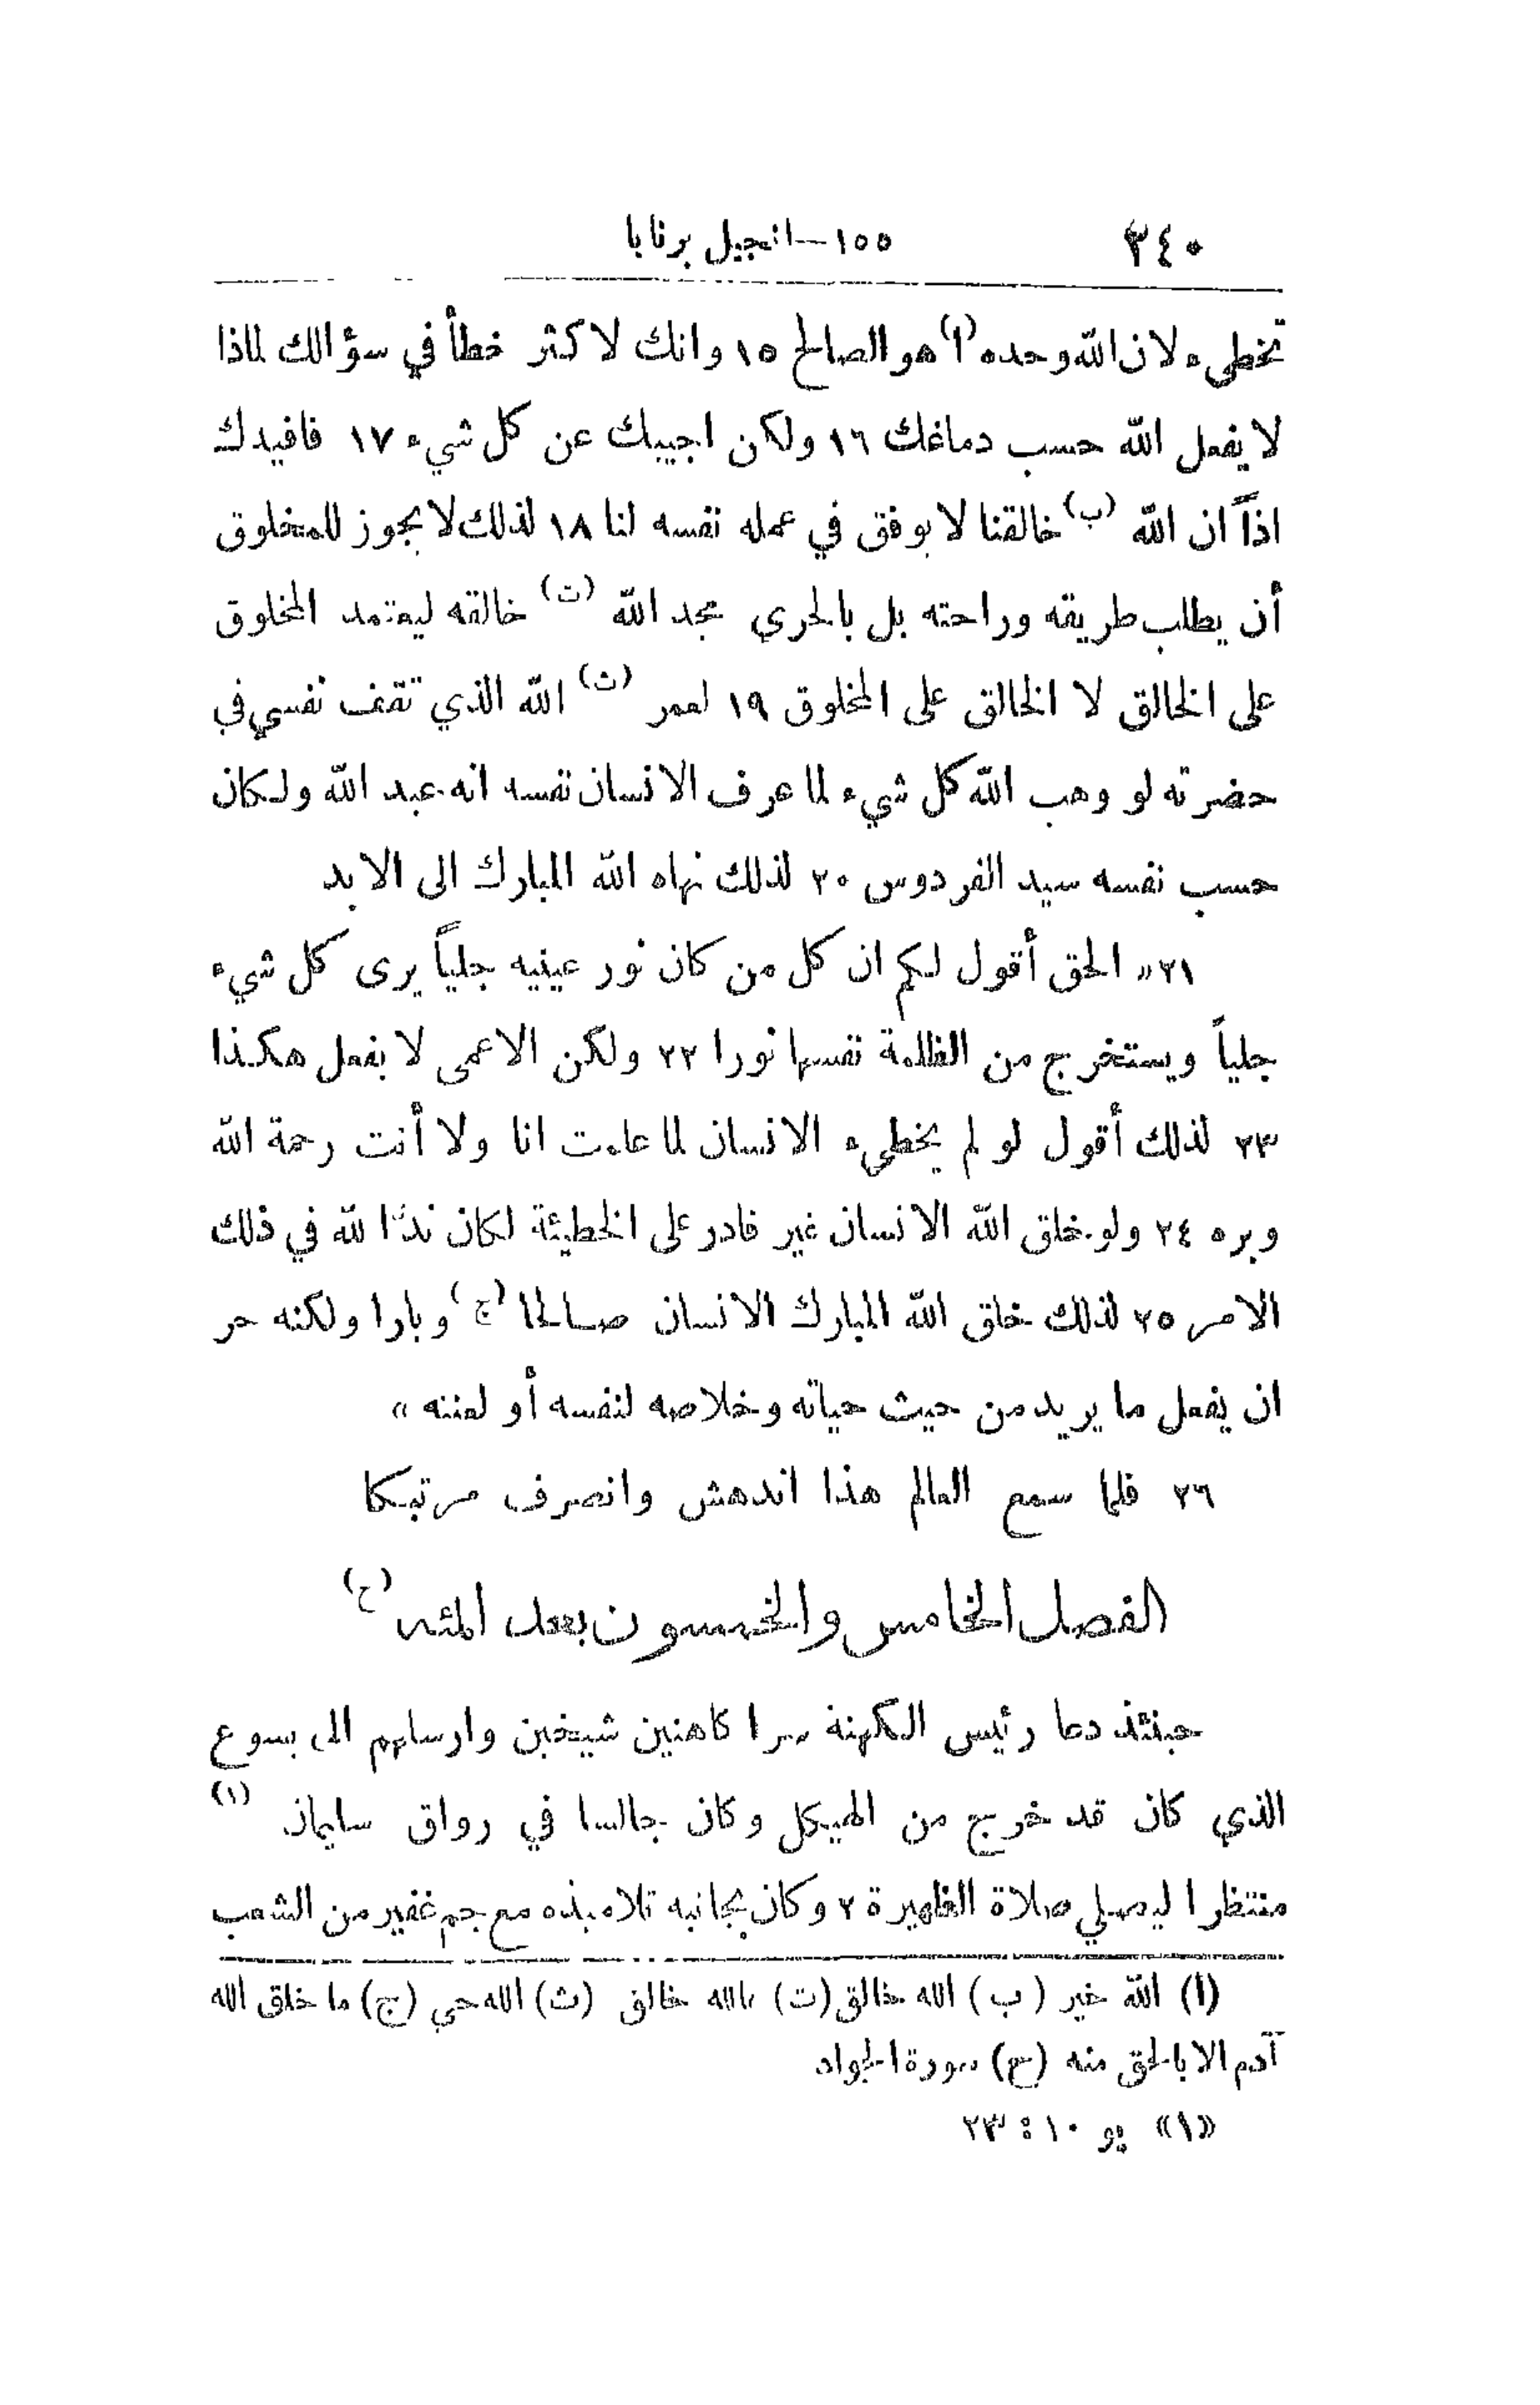 ٢٤٠ ١٥٥ – انجيل برنابا
تخطىء لان الله وحده (ا) هو الصالح ١٥ وانك لاكثر خطأ في سؤالك لماذا
لا يفعل الله حسب دماغك ١٦ ولكن اجيبك عن كل شيء ١٧ فافيدك
اذاً ان الله (ب) خالقنا لا يوفق في عمله نفسه لنا ١٨ لذلك لا يجوز للمخلوق
أن يطلب طريقه وراحته بل بالحري مجد الله (ت) خالقه ليعتمد المخلوق
على الخالق لا الخالق على المخلوق ١٩ لعمر (ث) الله الذي تقف نفسي في
حضرته لو وهب الله كل شيء لما عرف الانسان نفسه انه عبد الله ولكان
حسب نفسه سيد الفردوس ٢٠ لذلك نهاه الله المبارك الى الابد
٢١ «الحق أقول لكم ان كل من كان نور عينيه جلياً يرى كل شيء
جلياً ويستخرج من الظلمة نفسها نورا ٢٢ ولكن الاعمى لا يفعل هكذا
٢٣ لذلك أقول لو لم يخطىء الانسان لما علمت انا ولا أنت رحمة الله
وبره ٢٤ ولو خلق الله الانسان غير قادر على الخطيئة لكان ندّا لله في ذلك
الامر ٢٥ لذلك خلق الله المبارك الانسان صالحا (ج) وبارا ولكنه حر
ان يفعل ما يريد من حيث حياته وخلاصه لنفسه أو لعنته »
٢٦ فلما سمع العالم هذا اندهش وانصرف مرتبكا
الفصل الخامس والخمسون بعد المئه (ح)
حينئذ دعا رئيس الكهنة سرا كاهنين شيخين وارسلهم الى يسوع
الذي كان قد خرج من الهيكل وكان جالسا في رواق سليمان (١)
منتظرا ليصلي صلاة الظهيرة ٢ وكان بجانبه تلاميذه مع جم غفير من الشعب
(ا) الله خير (ب) الله خالق (ت) بالله خالق (ث) الله حي (ج) ما خلق الله
آدم الا بالحق منه (ح) سورة الجواد
«١» يو ١٠ : ٢٣